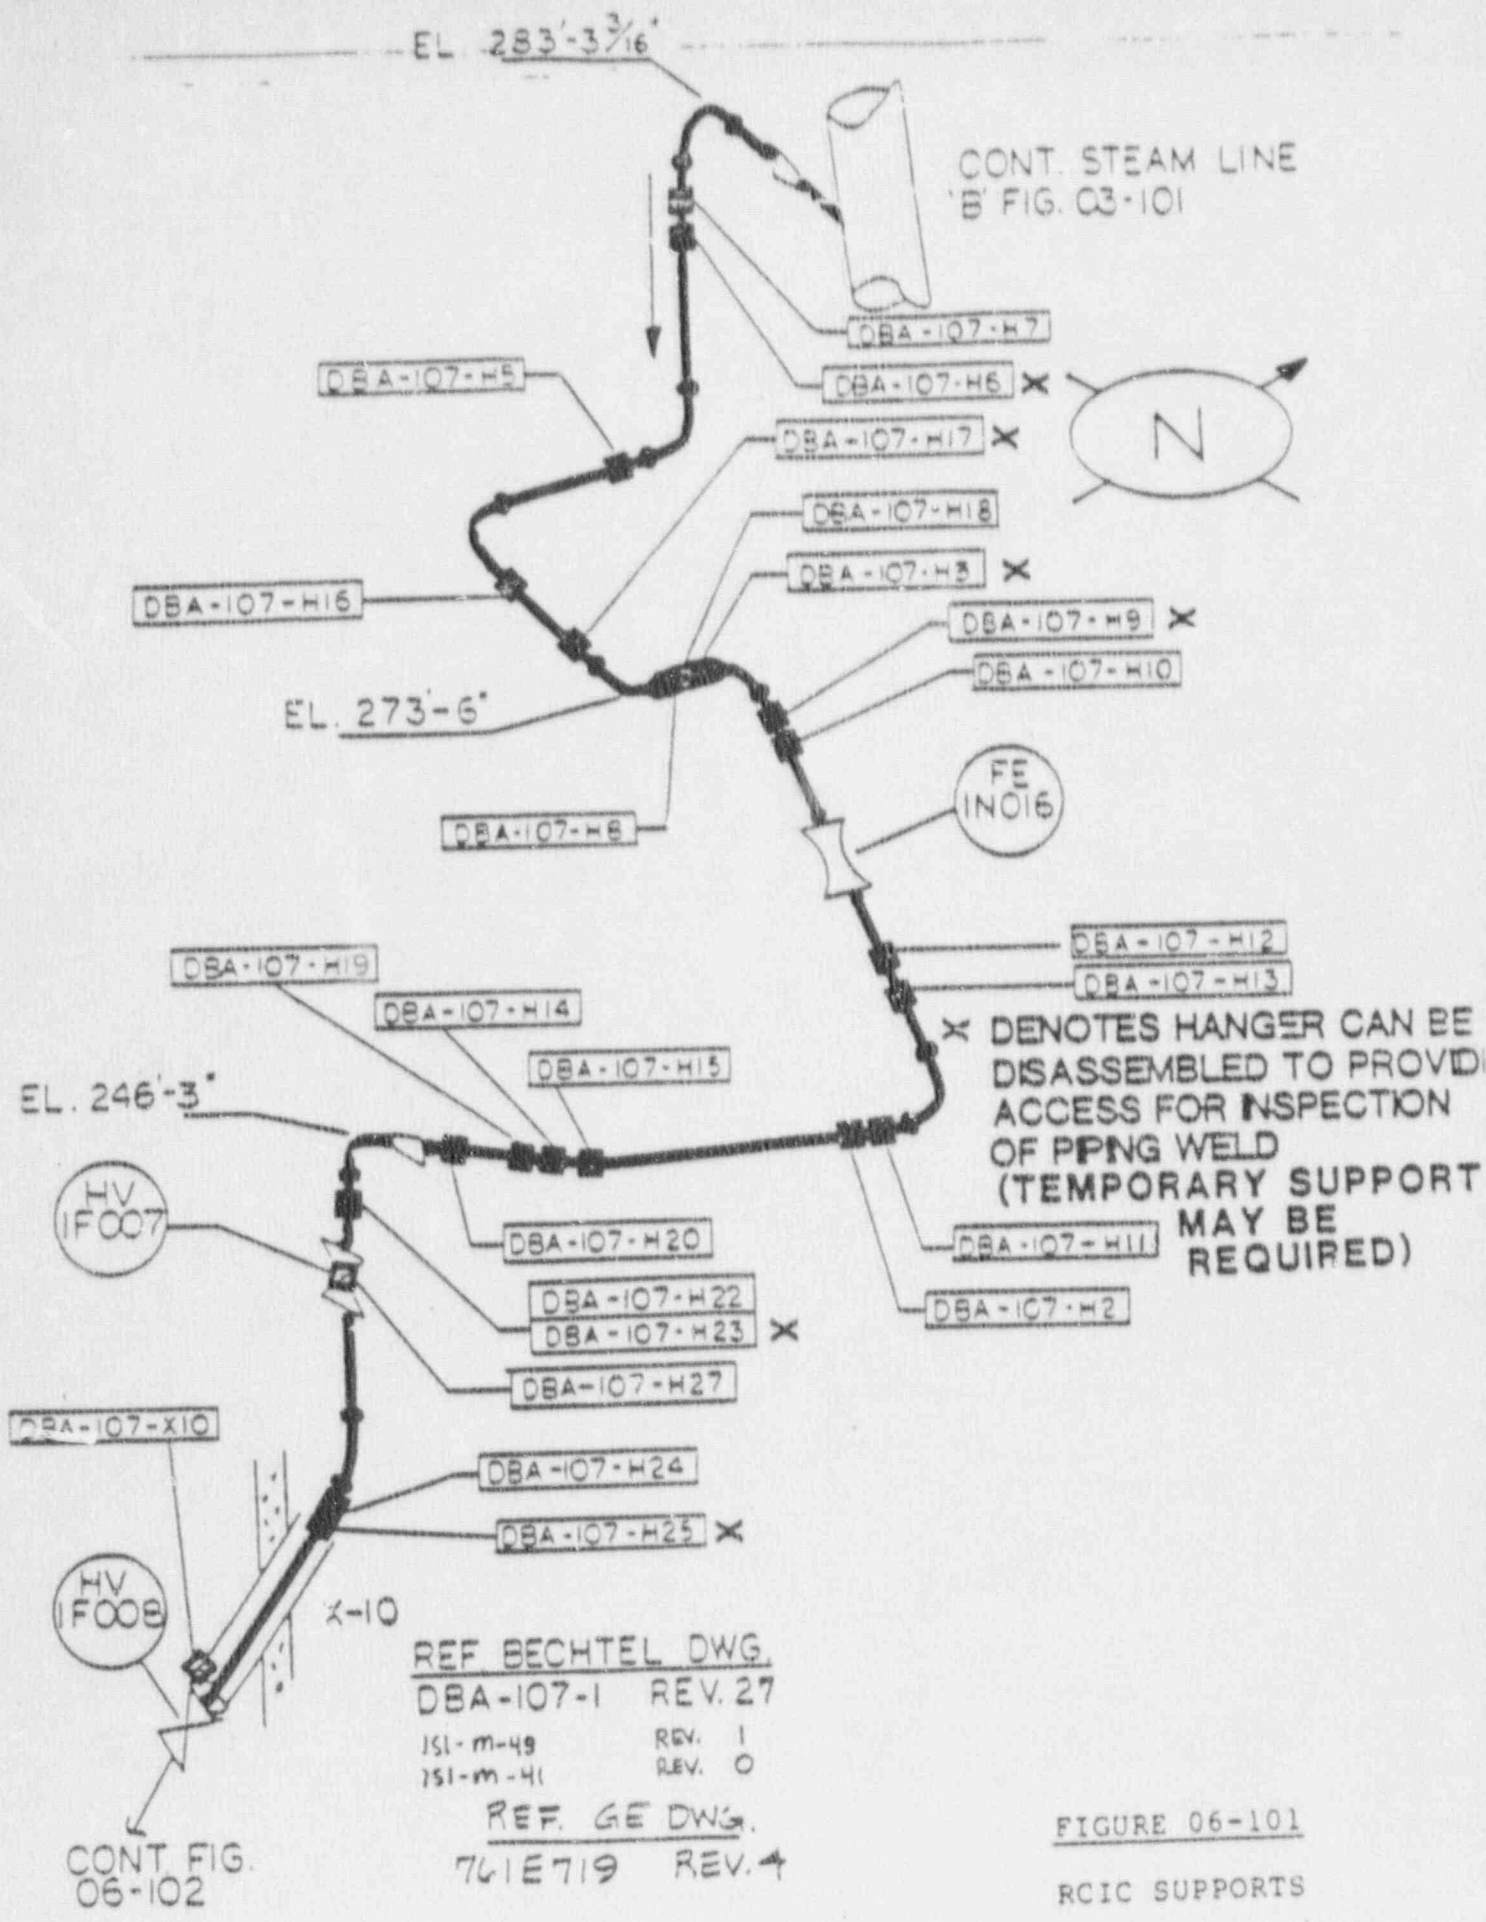 EL 283'-3 3/16"
CONT. STEAM LINE
'B' FIG. 03-101
DBA-107-H7
DBA-107-H5
DBA-107-H6 X
DBA-107-H17 X
N
DBA-107-H18
DBA-107-H3 X
DBA-107-H16
DBA-107-H9 X
DBA-107-H10
EL. 273'-6"
FE
1N016
DBA-107-H8
DBA-107-H12
DBA-107-H19
DBA-107-H13
DBA-107-H14
X DENOTES HANGER CAN BE
DISASSEMBLED TO PROVID
ACCESS FOR INSPECTION
OF PIPING WELD
(TEMPORARY SUPPORT
MAY BE
REQUIRED)
DBA-107-H15
EL. 246'-3"
HV
1F007
DBA-107-H20
DBA-107-H11
DBA-107-H22
DBA-107-H23 X
DBA-107-H2
DBA-107-H27
DBA-107-X10
DBA-107-H24
DBA-107-H25 X
HV
1F008
X-10
REF BECHTEL DWG.
DBA-107-1 REV. 27
ISI-M-49 REV. 1
ISI-M-41 REV. 0
REF. GE DWG.
761E719 REV. 4
CONT. FIG.
06-102
FIGURE 06-101
RCIC SUPPORTS